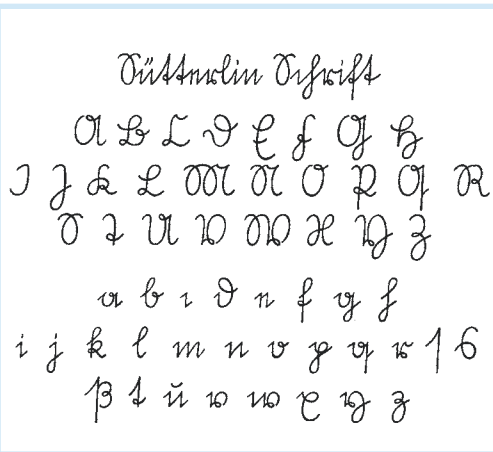 Sütterlin Schrift
A B C D E F G H
I J K L M N O P Q R
S T U V W X Y Z
a b c d e f g h
i j k l m n o p q r ſ s
ß t u v w x y z